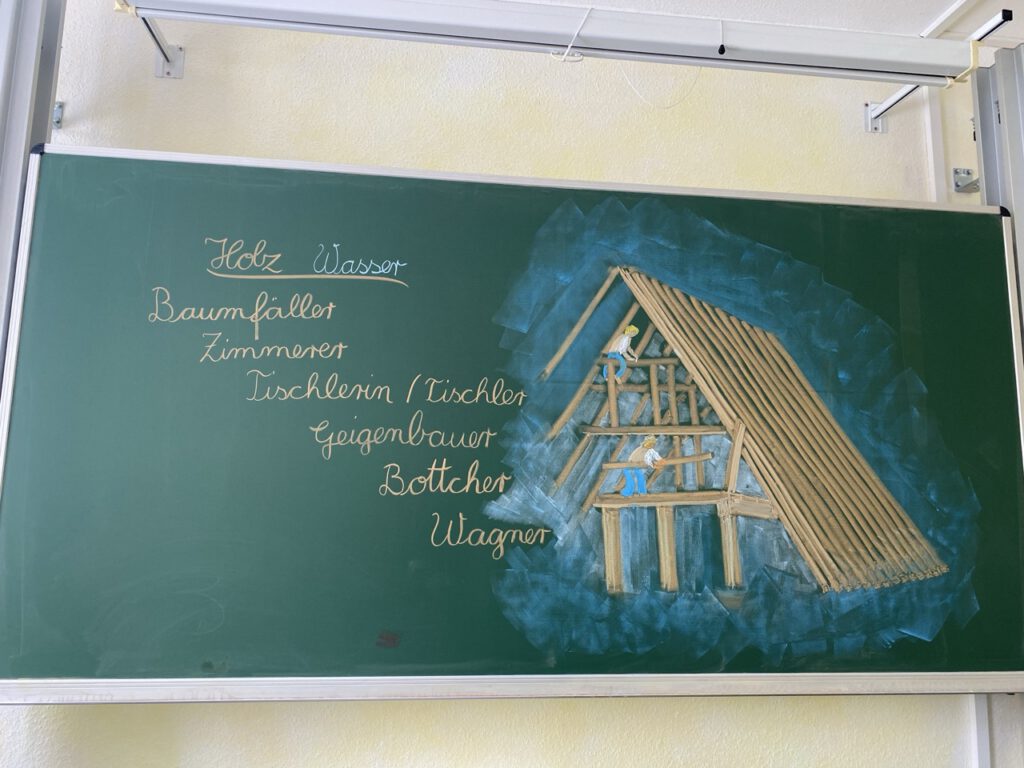 Holz Wasser
Baumfäller
Zimmerer
Tischlerin / Tischler
Geigenbauer
Bottcher
Wagner